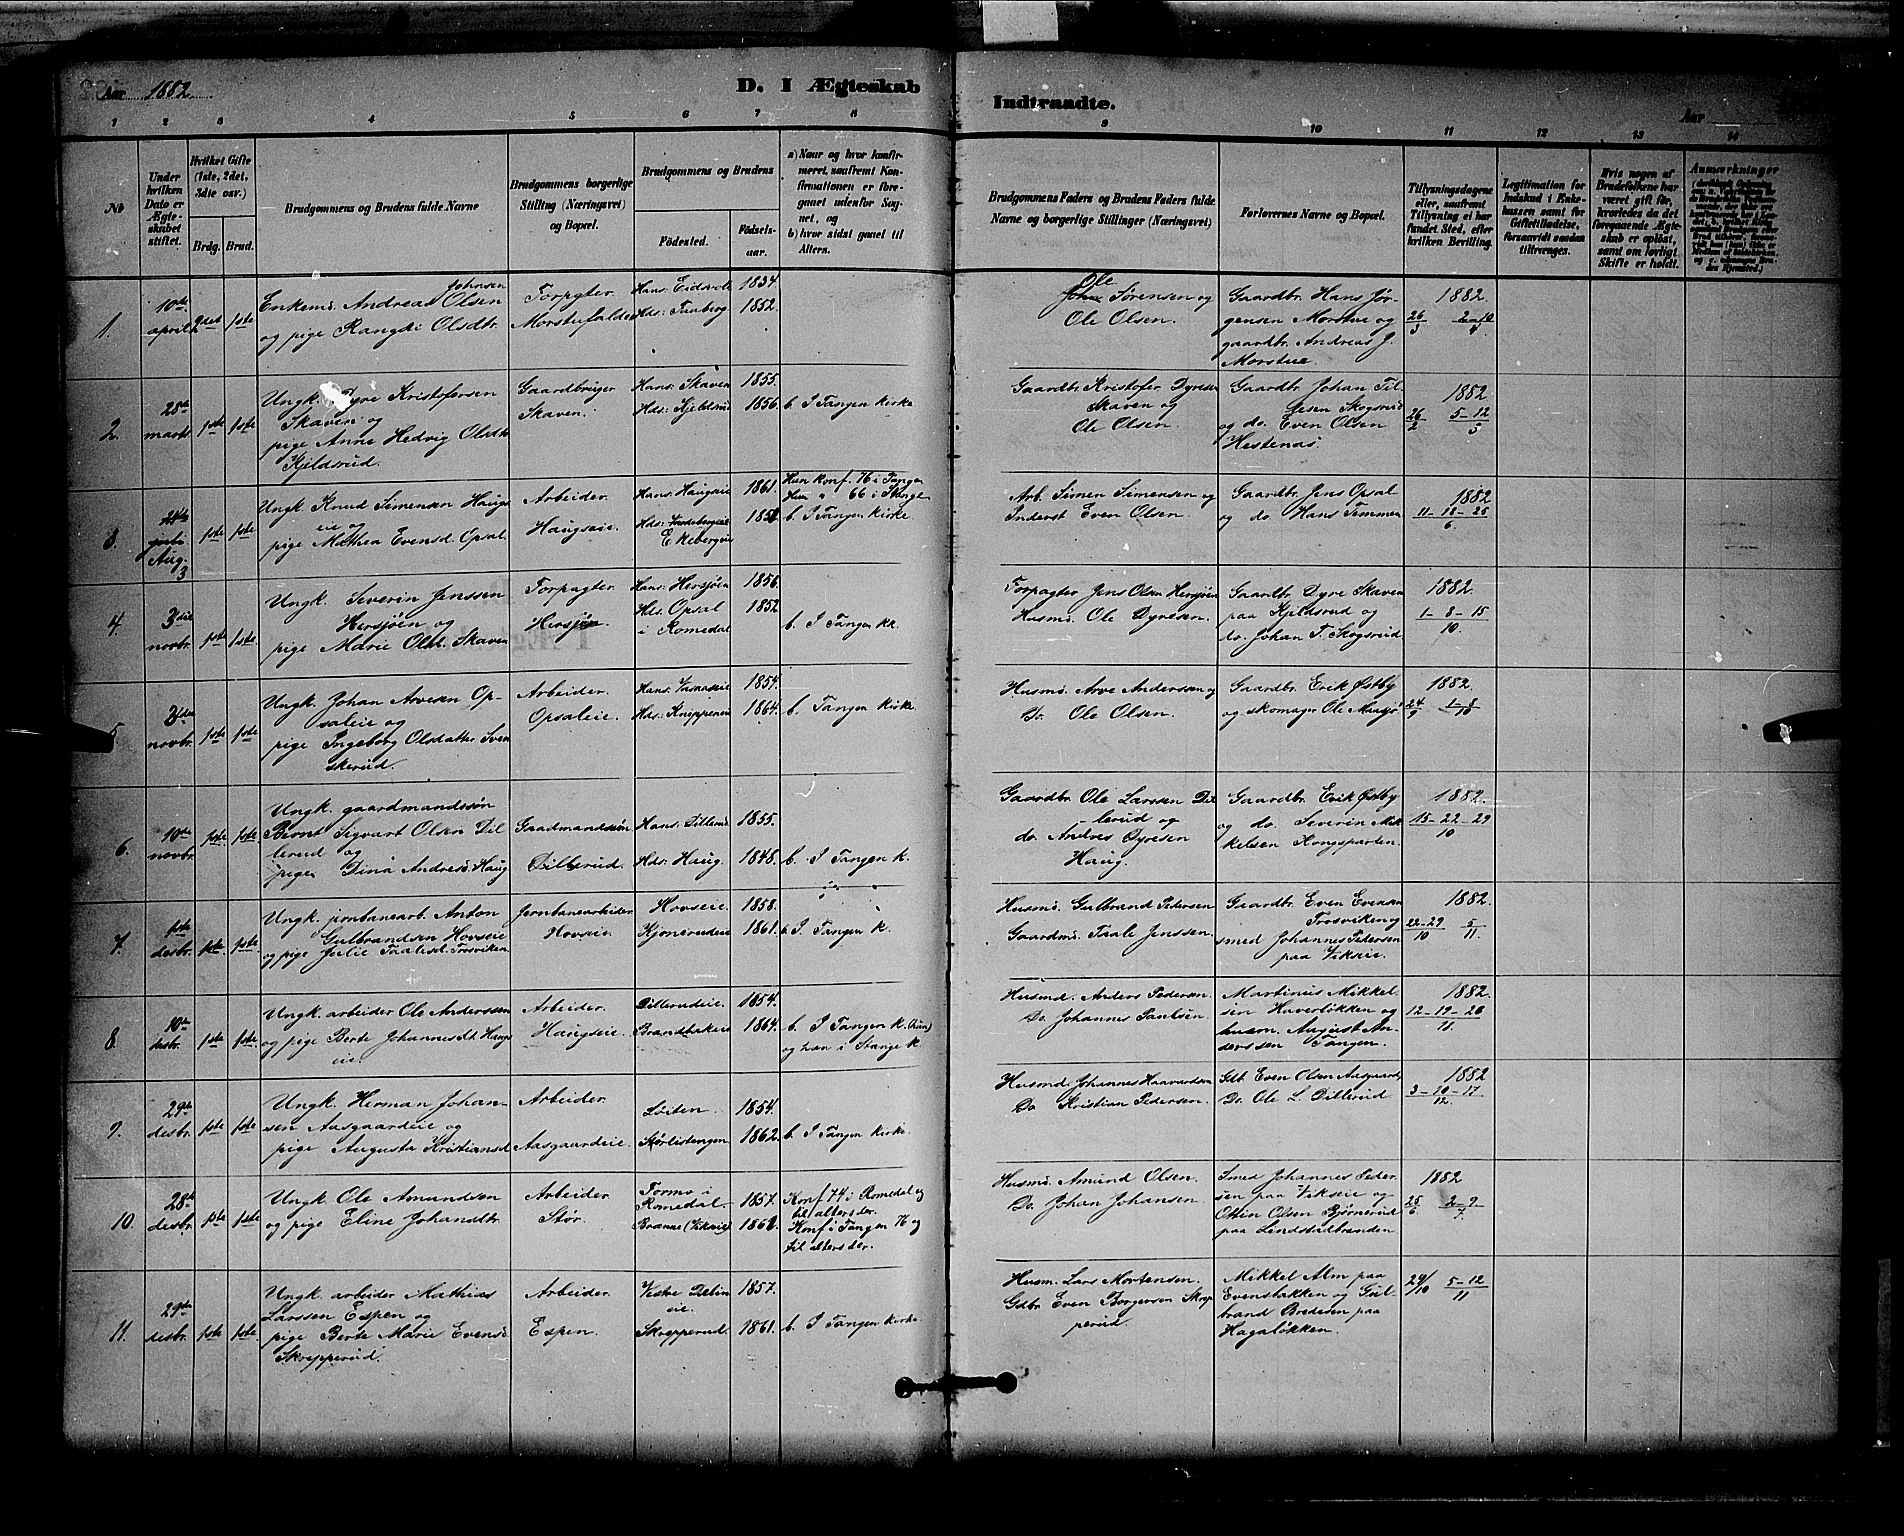 Aar 1882.
D. I Ægteskab
Indtraadte.
Aar
1 2 3 4 5 6 7 8 9 10 11 12 13 14
No
Under hvilken Dato er Ægteskabet stiftet.
Hvilket Gifte (1ste, 2det, 3die osv.)
Brdg. Brud.
Brudgommens og Brudens fulde Navne
Brudgommens borgerlige Stilling (Næringsvei) og Bopæl.
Brudgommens og Brudens
Födested.
Födselsaar.
a) Naar og hvor konfirmeret, saafremt Konfirmationen er foregaaet udenfor Sognet, og
b) hvor sidst gaaet til Altern.
Brudgommens Faders og Brudens Faders fulde Navne og borgerlige Stillinger (Næringsvei)
Forlovernes Navne og Bopæl.
Tillysningsdagene eller, saafremt Tillysning ei har fundet Sted, efter hvilken Bevilling.
Legitimation for Indskud i Enkekassen samt for Giftetilladelse, forsaavidt saadan tiltrænges.
Hvis nogen af Brudefolkene har været gift før, hvorledes da det foregaaende Ægteskab er opløst, samt om lovligt Skifte er holdt.
Anmærkninger
1. 10de april 2det 1ste
Enkem. Andreas Johnsen Olsen
og pige Rangdi Olsdtr.
Forpagter
Morstufalde
Hans: Eidsvold 1834
Hds: Faaberg 1852.
Ole Sørensen og
Ole Olsen.
Gaardbr. Hans Jør-
gensen Morstue og
gaardbr. Andreas J.
Morstue
1882.
26/3 2-10/4
2. 28de marts 1ste 1ste
Ungk. Dyre Kristofersen
Skaven og
pige Anne Hedvig Olsdtr
Kjeldsrud.
Gaardbruger
Skaven.
Hans: Skaven 1855.
Hds: Kjeldsrud 1856.
b. I Tangen Kirke
Gaardbr. Kristofer Dyresen
Skaven og
Ole Olsen.
Gaardbr. Johan Til-
lesen Skogsrud
og do. Even Olsen
Hestenæs.
1882
26/2 5-12/3
3. Aug. 3 1ste 1ste
Ungk. Knud Simensen Haugs
eie og
pige Mathea Evensd. Opsal.
Arbeider
Haugseie.
Hans: Haugseie 1861.
Ekebergeie
Han konf. 76 i Tangen
Hun " 66 i Stange
b. I Tangen Kirke
Arb. Simen Simensen og
Inderst Even Olsen.
Gaardbr. Jens Opsal
og do. Hans Temmen
1882
11-18-25/6
4. 3die novbr. 1ste 1ste
Ungk. Severin Jenssen
Hersjøen og
pige Marie Olsdt. Skaven
Forpagter
Hersjøen.
Hans: Hersjøen 1856.
Hds: Opsal 1852
i Romedal
b. I Tangen kk.
Forpagter Jens Olsen Hersjøen
Husm. Ole Dyresen.
Gaardbr. Dyre Skaven
paa Kjeldsrud og
do. Johan T. Skogsrud
1882.
1-8-15/10.
5. 3die novbr. 1ste 1ste
Ungk. Johan Arvesen Op-
saleie og
pige Ingeborg Olsdatter Sven
skerud.
Arbeider.
Opsaleie.
Hans: Vasaaseie 1854.
Hds: Knippeneie 1864.
b. Tangen Kirke
Husm. Arve Andersen og
Do. Ole Olsen.
Gaardbr. Erik Østby
og skomager Ole
1882.
24/9 1-8/10
6. 10de novbr. 1ste 1ste
Ungk. gaardmandssøn
Bernt Sigvart Olsen Dil
lerud og
pigen Dina Andresd. Haug
Gaardmandssøn
Dillerud.
Hans: Dillerud 1855.
Hds: Haug. 1848.
b. I Tangen K.
Gaardbr. Ole Larssen Dil
lerud og
do. Andres Dyresen
Haug.
Gaardbr. Erik Østby
og do. Severin Mik
kelsen Kongsparten.
1882.
15-22-29/10
7. 1ste desbr. 1ste 1ste
Ungk. jernbanearb. Anton
Gulbrandsen Hovseie
og pige Julie Taalesd. Trosviken
Jernbanearbeider
Hovseie.
Hovseie. 1858.
Kjonerudeie 1861.
b. I Tangen K.
Husm. Gulbrand Pedersen
Gaardm. Taale Jenssen.
Gaardbr. Even Evensen
Trosviken og
smed Johannes Pedersen
paa Vikseie.
1882
22-29/10 5/11.
8. 10de desbr. 1ste 1ste
Ungk. arbeider Ole Anderssen
og pige Berte Johannesdt. Haugs
eie.
Arbeider.
Haugseie.
Dillerudeie. 1854.
Brandbakeie 1864.
b. I Tangen K. (hun)
og han i Stange K.
Husmd. Anders Pedersen.
Do. Johannes Paulsen.
Martinus Mikkel
sen Haverløkken og
husm. August An-
derssen Tangen.
1882.
12-19-26/11.
9. 29de desbr. 1ste 1ste
Ungk. Herman Johan-
sen Aasgaardeie og
pige Augusta Kristiansd
Arbeider.
Aasgaardeie.
Løiten. 1854.
Størlistengen 1862.
b. I Tangen Kirke.
Husmd. Johannes Haavardsen
Do Kristian Pedersen.
Gdb. Even Olsen Aasgaard,
Do. Ole L. Dillerud.
1882
3-10-17/12.
10. 28de desbr. 1ste 1ste
Ungk. Ole Amundsen
og pige Eline Johansdtr.
Arbeider
Stør.
Tormo i
Romedal. 1857.
(Vikseie) 1862.
Konf 74 i Romedal og
til alters der.
Konf i Tangen 76 og
til alters der.
Husm. Amund Olsen.
Do. Johan Johansen.
Smed Johannes Peder
sen paa Vikseie og
Ottin Olsen Bjørnerud
paa Lindstadbranden
1882
25/6 2-9/7.
11. 29de desbr. 1ste 1ste
Ungk. arbeider Mathias
Larssen Espen og
pige Berte Marie Evensd.
Skrepperud.
Arbeider.
Espen.
Vestre Delin
eie. 1857.
Skrepperud. 1861.
b. I Tangen Kirke
Husm. Lars Mortensen.
Gdbr Even Borgersen Skrep
perud.
Mikkel Alm paa
Evenstakken og Gul-
brand Bredesen paa
Hagaløkken.
29/10 5-12/11